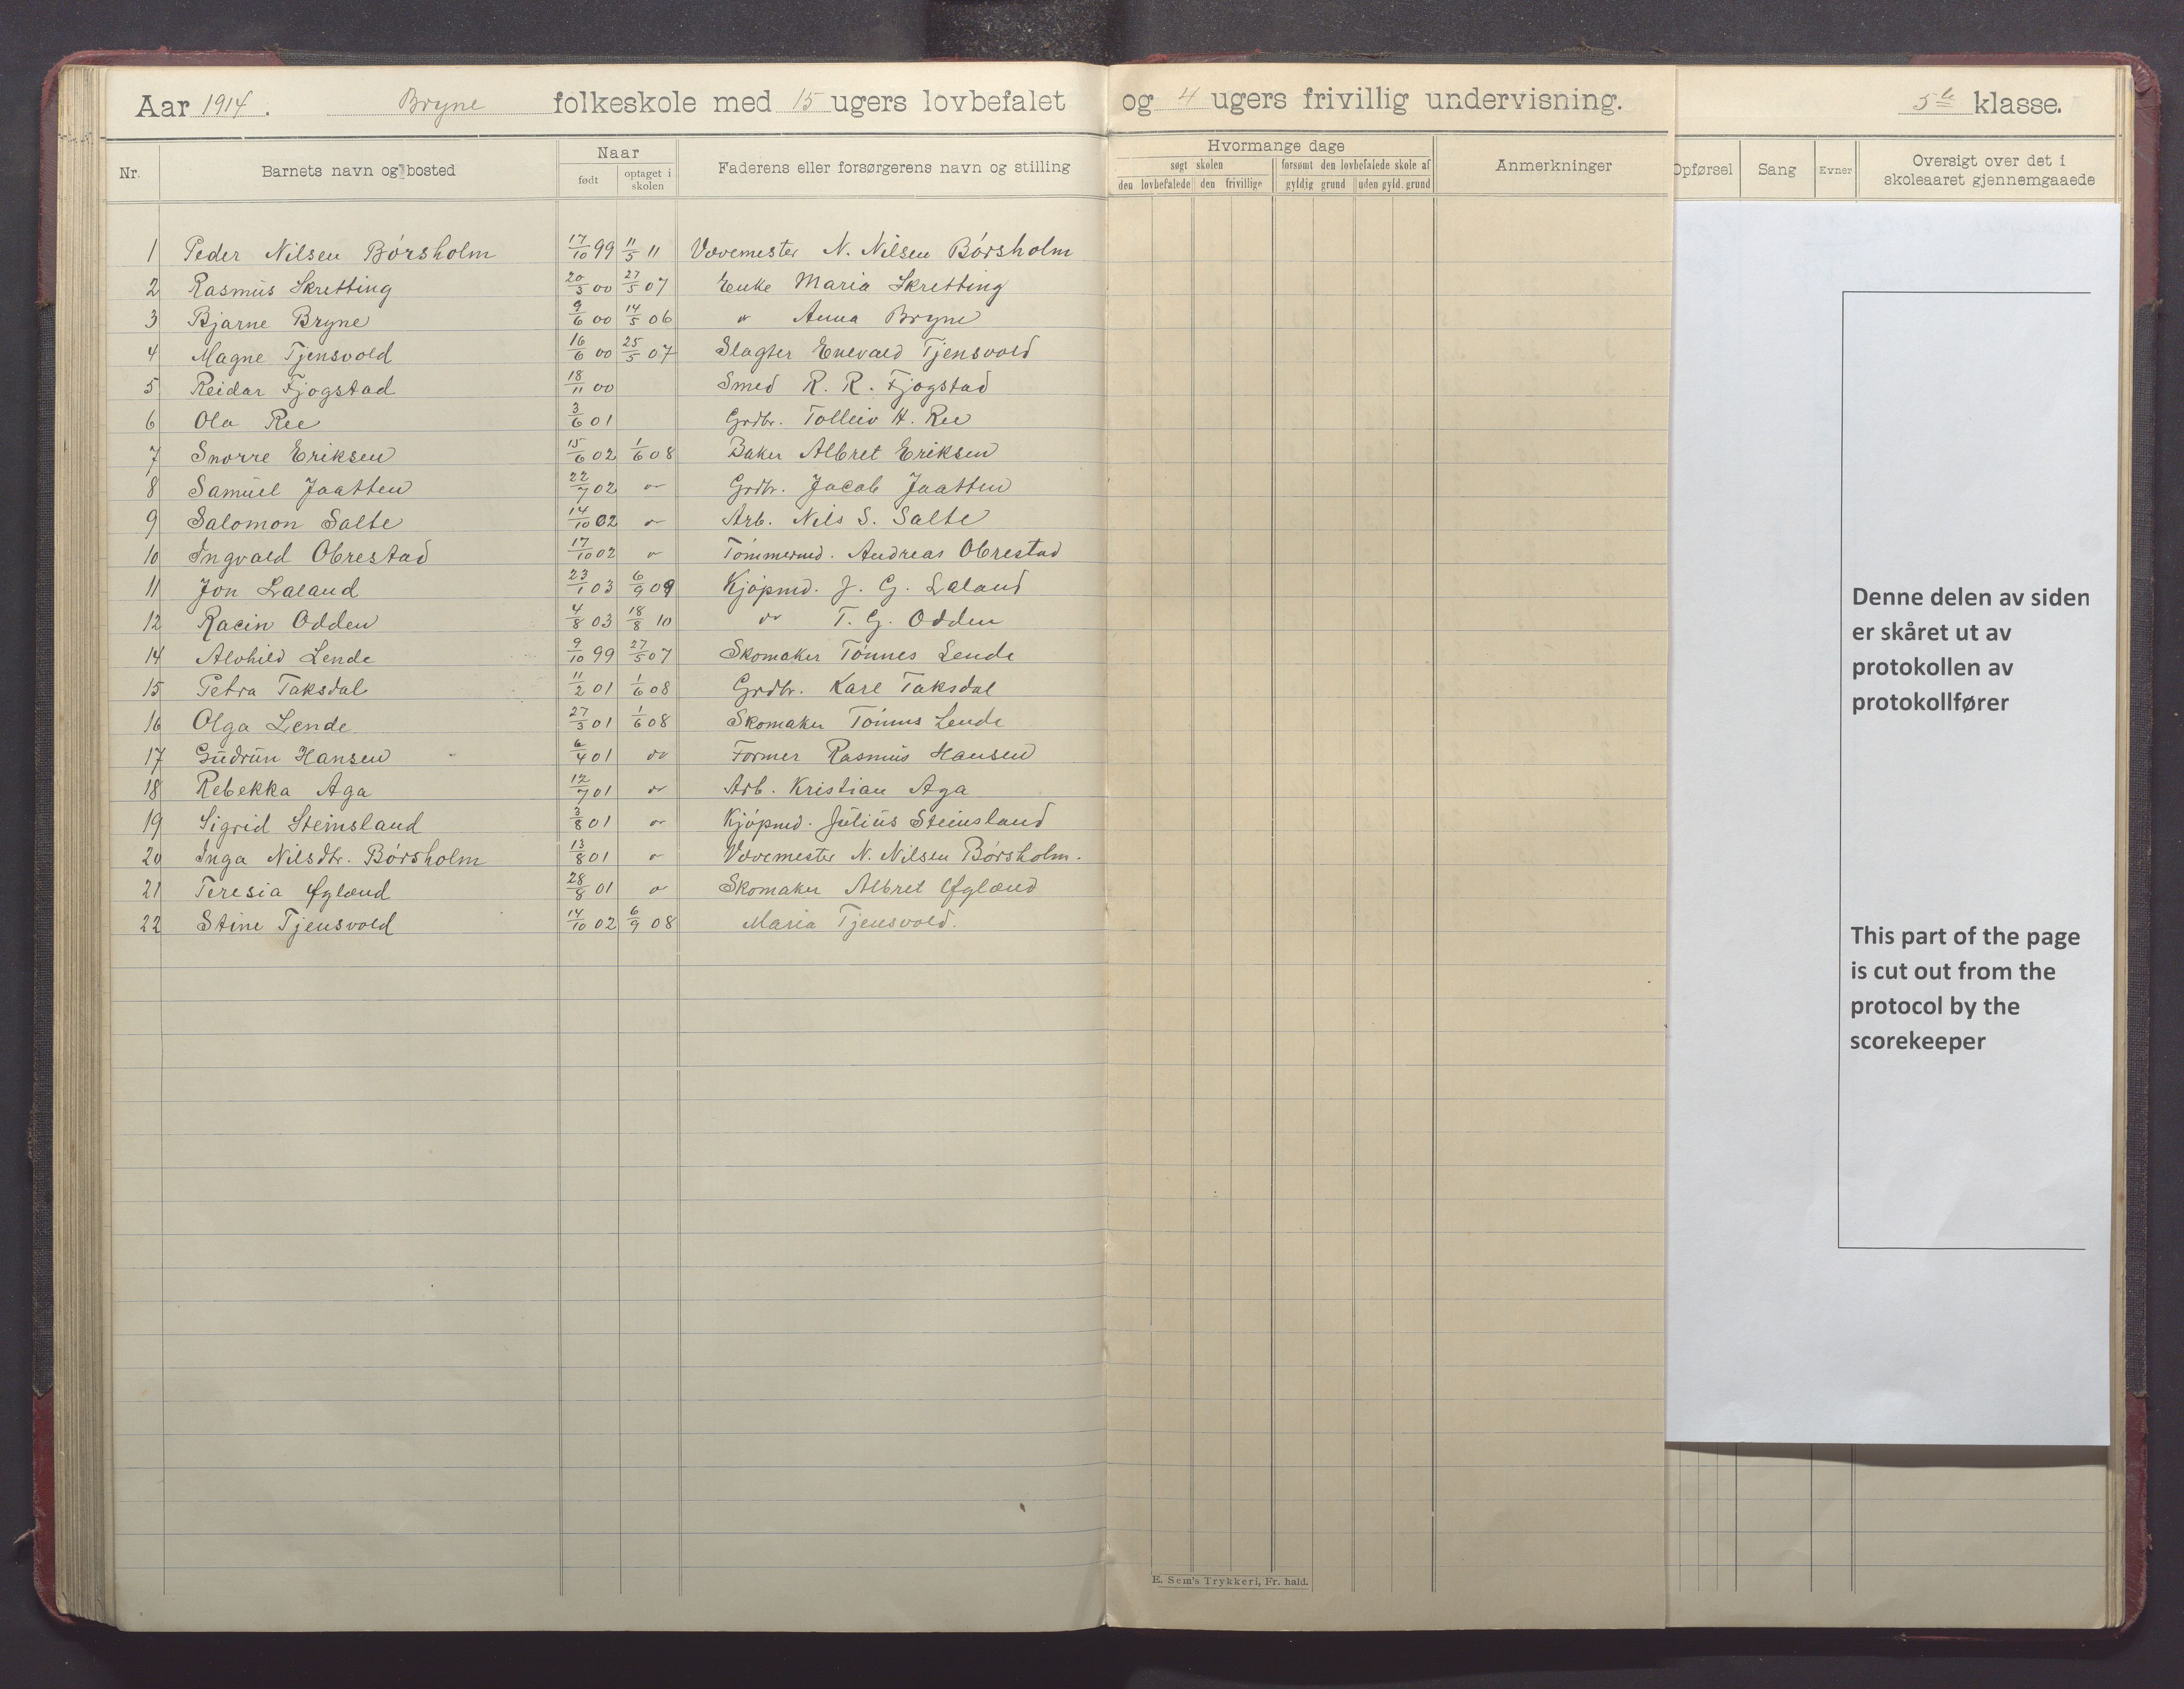 Aar 1914. Bryne folkeskole med 15 ugers lovbefalet og 4 ugers frivillig undervisning. 5te klasse.
Nr. Barnets navn og bosted Naar født optaget i skolen Faderens eller forsørgerens navn og stilling Hvormange dage søgt skolen den lovbefalede den frivillige forsømt den lovbefalede skole af gyldig grund uden gyld. grund Anmerkninger Opførsel Sang Evner Oversigt over det i skoleaaret gjennemgaaede
1 Peder Nilsen Børsholm 17/10 99 11/5 11 Vævemester N. Nilsen Børsholm
2 Rasmus Skretting 20/3 00 27/5 07 Enke Maria Skretting
3 Bjarne Bryne 9/6 00 14/5 06 " Anna Bryne
4 Magne Tjensvold 16/6 00 25/5 07 Slagter Enevald Tjensvold
5 Reidar Fjogstad 18/11 00 Smed R. R. Fjogstad
6 Ola Ree 3/6 01 Grdbr. Tolleiv H. Ree
7 Snorre Eriksen 15/6 02 1/6 08 Baker Albret Eriksen
8 Samuel Jaatten 22/7 02 " Grdbr. Jacob Jaatten
9 Salomon Salte 14/10 02 " Arb. Nils S. Salte
10 Ingvald Obrestad 17/10 02 " Tømmermd. Andreas Obrestad
11 Jon Laland 23/1 03 6/9 09 Kjøpmd. J. G. Laland
12 Racin Odden 4/8 03 18/8 10 " T. G. Odden
14 Alvhild Lende 9/10 99 27/5 07 Skomaker Tønnes Lende
15 Petra Taksdal 11/2 01 1/6 08 Grdbr. Karl Taksdal
16 Olga Lende 27/3 01 1/6 08 Skomaker Tønnes Lende
17 Gudrun Hansen 6/4 01 " Former Rasmus Hansen
18 Rebekka Aga 12/7 01 " Arb. Kristian Aga
19 Sigrid Steinsland 3/8 01 " Kjøpmd. Julius Steinsland
20 Inga Nilsdtr. Børsholm 13/8 01 " Vævemester N. Nilsen Børsholm.
21 Teresia Øglænd 28/8 01 " Skomaker Albret Øglænd
22 Stine Tjensvold 14/10 02 6/9 08 Maria Tjensvold.
E. Sem's Trykkeri, Fr. hald.
Denne delen av siden
er skåret ut av
protokollen av
protokollfører
This part of the page
is cut out from the
protocol by the
scorekeeper